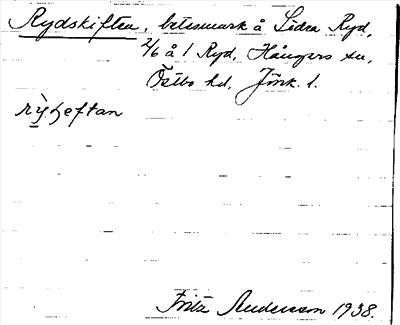 Rydskiften, betesmark å Södra Ryd,
2/6 å 1 Ryd, Hångers sn,
Östbo hd, Jönk. l.
rỳʂeftan
Fritz Andersson 1938.